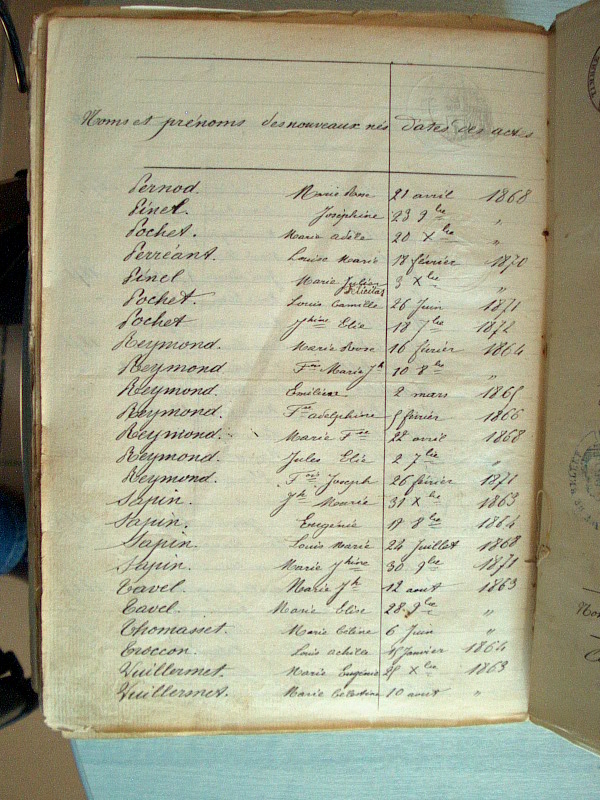 Noms et prénoms des nouveaux nés Dates des actes
Pernod. Marie Rose 21 avril 1868
Pinel. Joséphine 23 9bre "
Pochet. Marie adèle 20 Xbre "
Perréant. Louise Marie 18 février 1870
Pinel Marie Julie Félicitas 3 Xbre "
Pochet. Louis Camille 26 Juin 1871
Pochet Jhine Elie 18 7bre 1872
Reymond. Marie Rose 16 février 1864
Reymond Fois Marie Jh 10 8bre "
Reymond. 2 mars 1865
Reymond. Fse adelphine 5 février 1866
Reymond. Marie Fse 22 avril 1868
Reymond. Jules Elie 2 7bre "
Reymond. Fois Joseph 26 février 1871
Sapin. Jh Marie 31 Xbre 1863
Sapin. Eugénie 18 8bre 1864
Sapin. Louis Marie 24 Juillet 1868
Sapin. Marie Jhine 30 9bre 1871
Tavel. Marie Jh 12 aout 1863
Tavel. Marie Elise 28 9bre "
Thomasset. Marie Céline 6 Juin "
Troccon. Louis achille Janvier 1864
Vuillermet. Marie Eugénie Xbre 1863
Vuillermet. Marie Célestine 10 aout "